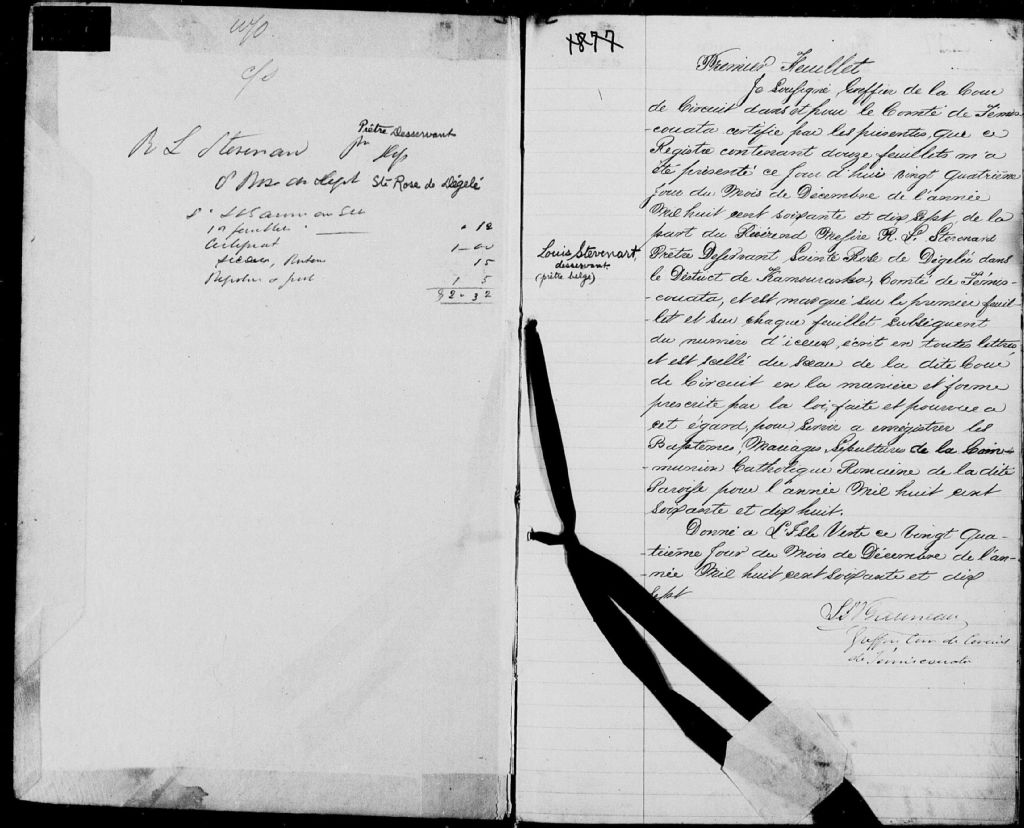 c/o
R L Stevenard
Prêtre Desservant
Ste Rose de Dégelé
12
Certificat 1-00
15
$2-32
1877
Louis Stevenart
desservant
(prêtre belge)
Premier Feuillet
Je Soussigné, Greffier de la Cour
de Circuit dans et pour le Comté de Témis-
-couata certifie par les présentes, que ce
Registre contenant douze feuillets m'a
été présenté ce jour d'hui vingt quatrième
jour du Mois de Décembre de l'année
Mil huit cent soixante et dix Sept, de la
part du Révérend Messire R. L. Stevenard
Prêtre Desservant, Sainte Rose de Dégelée dans
le District de Kamouraska, Comté de Témis-
-couata, et est marqué sur le premier feuil-
-let et sur chaque feuillet subséquent
du numéro d'iceux, écrit en toutes lettres
et est scellé du Sceau de la dite Cour
de Circuit en la manière et forme
prescrite par la loi, faite et pourvue a
cet égard, pour servir a enregistrer les
Baptemes, Mariages, Sépultures de la Com-
-munion Catholique Romaine de la dite
Paroisse pour l'année Mil huit cent
Soixante et dix huit.
Donné a L'Isle Verte ce vingt qua-
-trième Jour du Mois de Décembre de l'an-
-née Mil huit cent Soixante et dix
Sept
Greffier Cour de Circuit
de Témiscouata